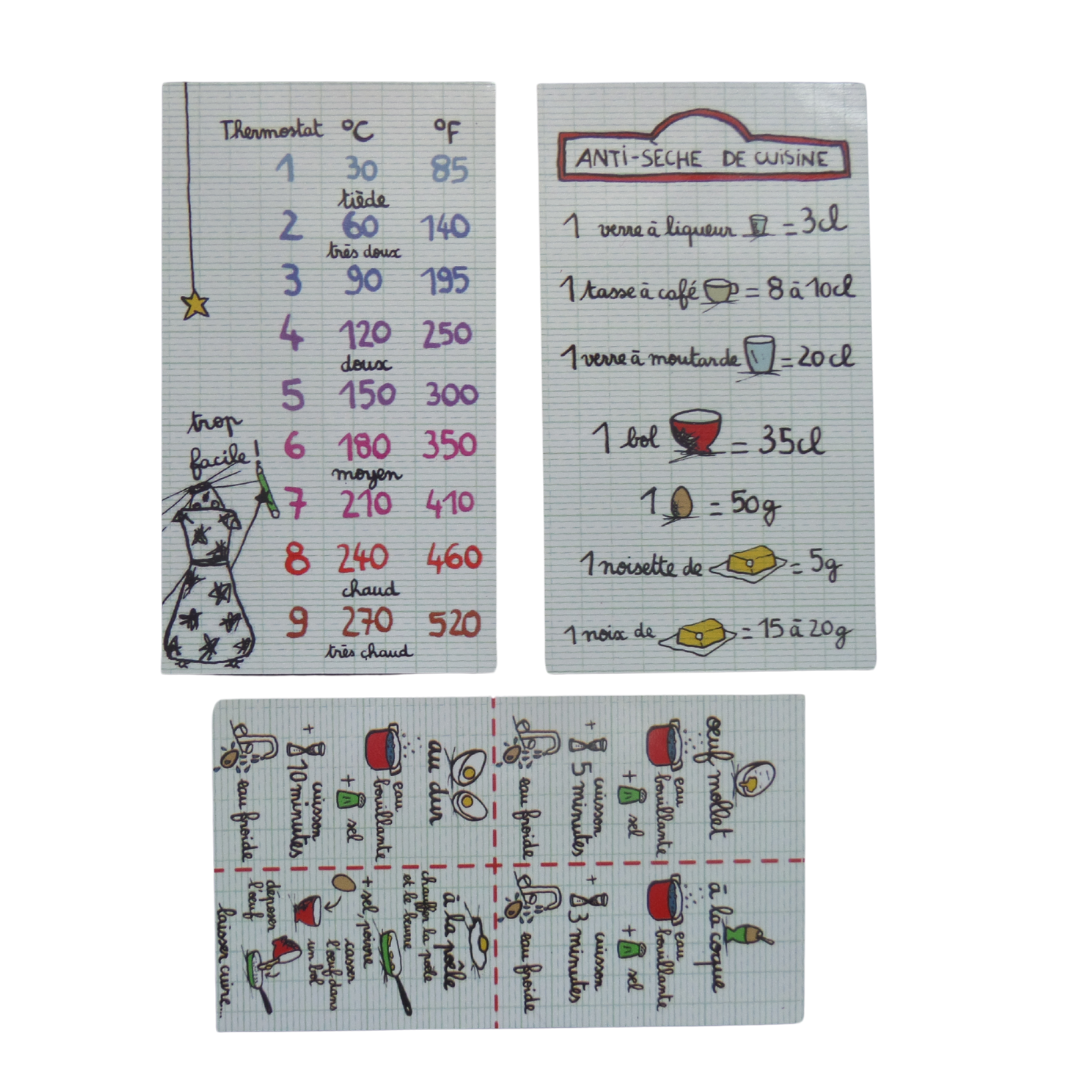 Thermostat °C °F
1 30 85
tiède
2 60 140
très doux
3 90 195
4 120 250
doux
5 150 300
6 180 350
moyen
7 210 410
8 240 460
chaud
9 270 520
très chaud
trop
facile !
ANTI-SÈCHE DE CUISINE
1 verre à liqueur = 3cl
1 tasse à café = 8 à 10cl
1 verre à moutarde = 20 cl
1 bol = 35cl
1 = 50g
1 noisette de = 5g
1 noix de = 15 à 20g
œuf mollet
eau
bouillante
+ sel
cuisson
+ 5 minutes
eau froide
à la coque
eau
bouillante
+ sel
cuisson
+ 3 minutes
eau froide
au dur
eau
bouillante
+ sel
cuisson
+ 10 minutes
eau froide
à la poêle
chauffer la poêle
et le beurre
+ sel, poivre
casser
l'œuf dans
un bol
déposer
l'œuf
laisser cuire...